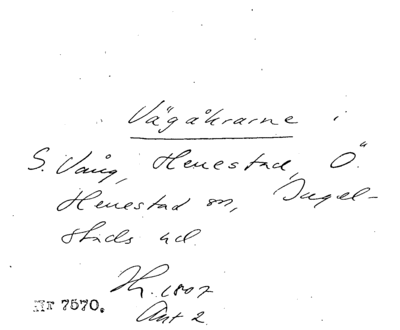 Vägåkrarne i
S. Vång, Herrestad, Ö.
Herrestad sn, Ingel-
stads hd.
Hr. 1807
Akt 2
Nr 7570.